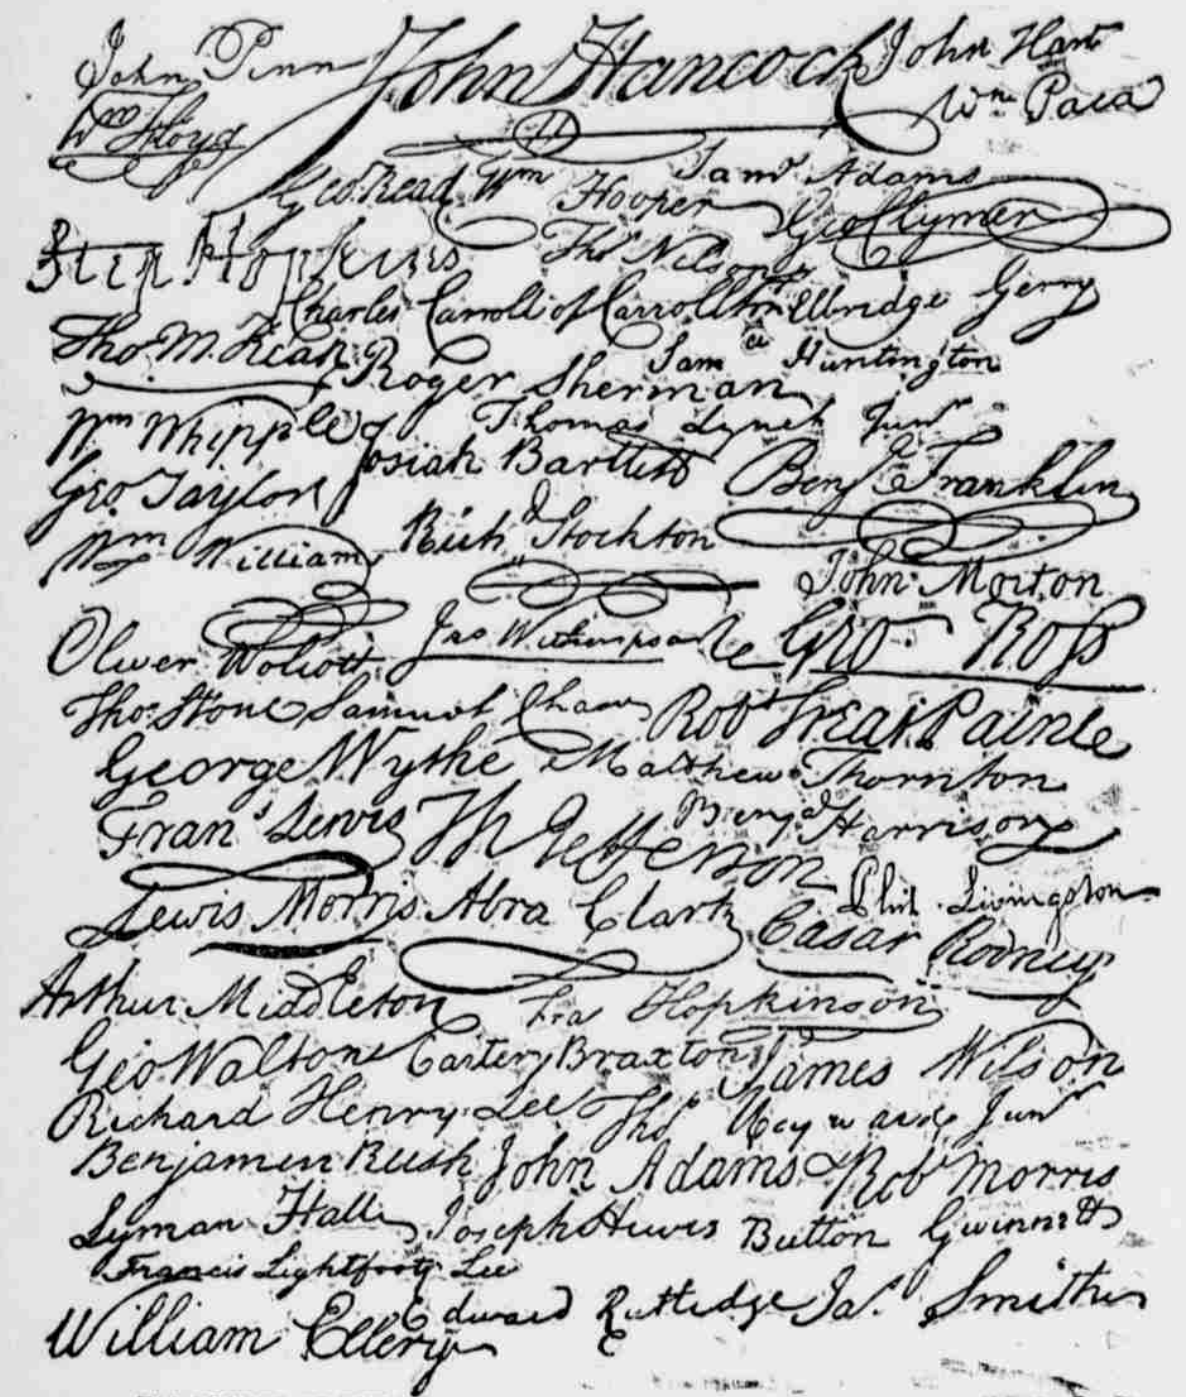 John Penn John Hancock John Hart
Wm Floyd Wm Paca
Geo Read Wm Hooper Saml Adams
Geo Clymer
Step Hopkins Thos Nelson jr
Charles Carroll of Carrollton Elbridge Gerry
Tho M. Kean Roger Sherman Saml Huntington
Wm Whipple Thomas Lynch Junr
Josiah Bartlett Benj Franklin
Geo Taylor
Wm Williams Richd Stockton John Morton
Oliver Wolcott Jno Witherspoon Geo Ross
Thos Stone Samuel Chase Robt Treat Paine
George Wythe Matthew Thornton
Frans Lewis Th Jefferson Benja Harrison
Lewis Morris Abra Clark Phil. Livingston
Casar Rodney
Arthur Middleton Fra Hopkinson
Geo Walton Carter Braxton James Wilson
Richard Henry Lee Thos Heyward Junr
Benjamin Rush John Adams Robt Morris
Lyman Hall Joseph Hewes Button Gwinnett
Francis Lightfoot Lee
William Ellery Edward Rutledge Jas. Smith